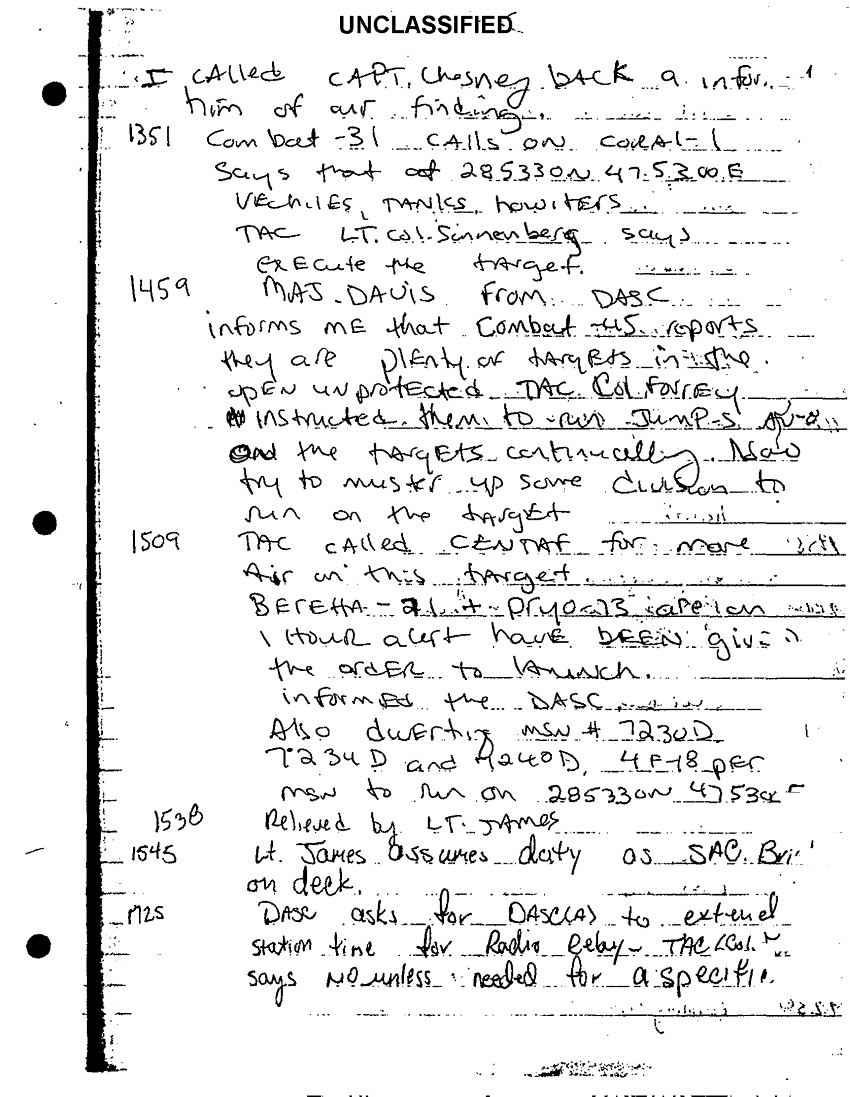 UNCLASSIFIED
I CAlled CAPT. Chesney bACK a infor.
him of our finding.
1351 Combat -31 CAlls on CORAl-1
Says that at 285330N 47.5300E
VEChilES, TANKS, howiTERS
TAC LT. Col. Sinnenberg says
EXECute the tArgeT.
1459 MAJ. DAVIS from DASC
informs ME that Combat -45 reports
they are plenty of tArgETS in the
opEN unprotECted TAC Col. Forney
instructed them to run Jump-S
and the tArgETS continually. Also
try to muster up some division to
run on the tArgEt
1509 TAC cAlled CENTAF for more
Air on this tArget.
BERETTA - 71 +
1 Hour alert have BEEN given
the ordER to lAunch.
informEd the DASC
Also diverting MSN # 7230D
7234D and 7240D, 4 F-18 per
msn to run on 285330N 47530
1538 Relieved by LT. JAMES
1545 Lt. James assumes duty as SAC.
on deck.
1725 DASC asks for DASC(A) to extend
station time for Radio Relay - TAC (Col.
says NO unless needed for a specific